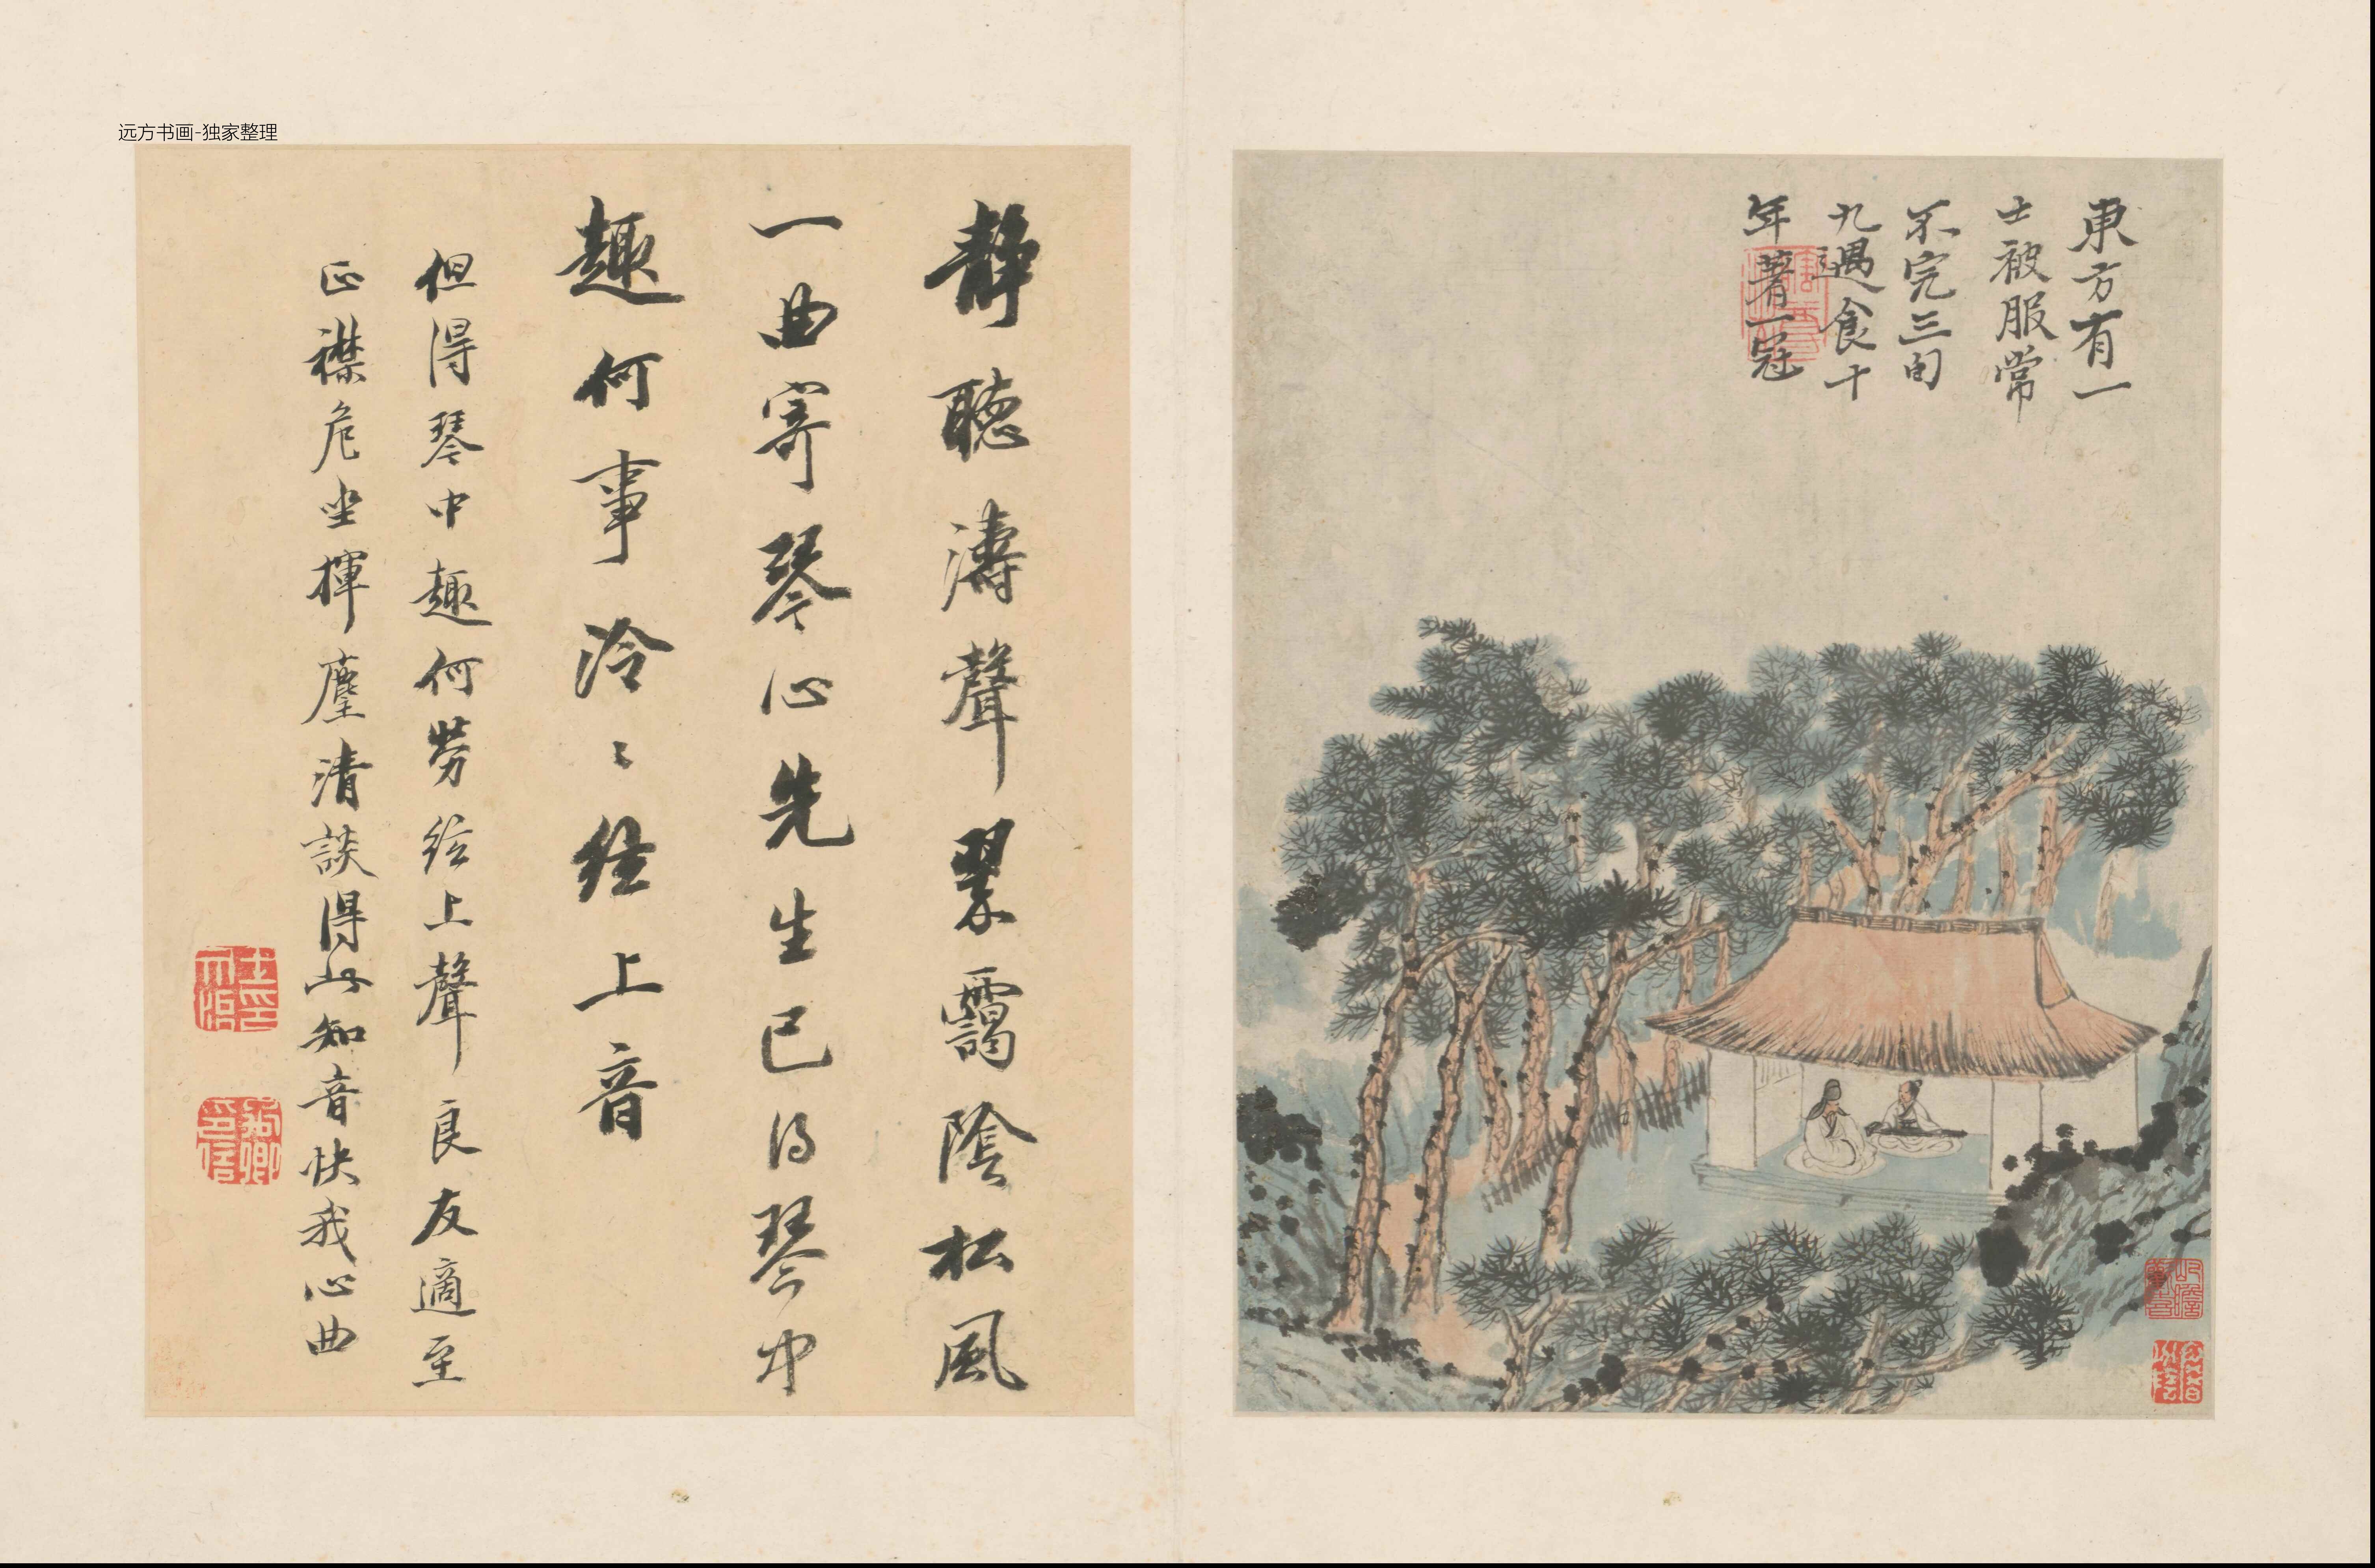 远方书画-独家整理
東方有一
士被服常
不完三旬
九遇食十
年著一冠
静聽濤聲翠靄陰松風
一曲寄琴心先生已得琴中
趣何事泠〻絃上音
但得琴中趣何勞絃上聲良友適至
正襟危坐揮麈清談得此知音快我心曲